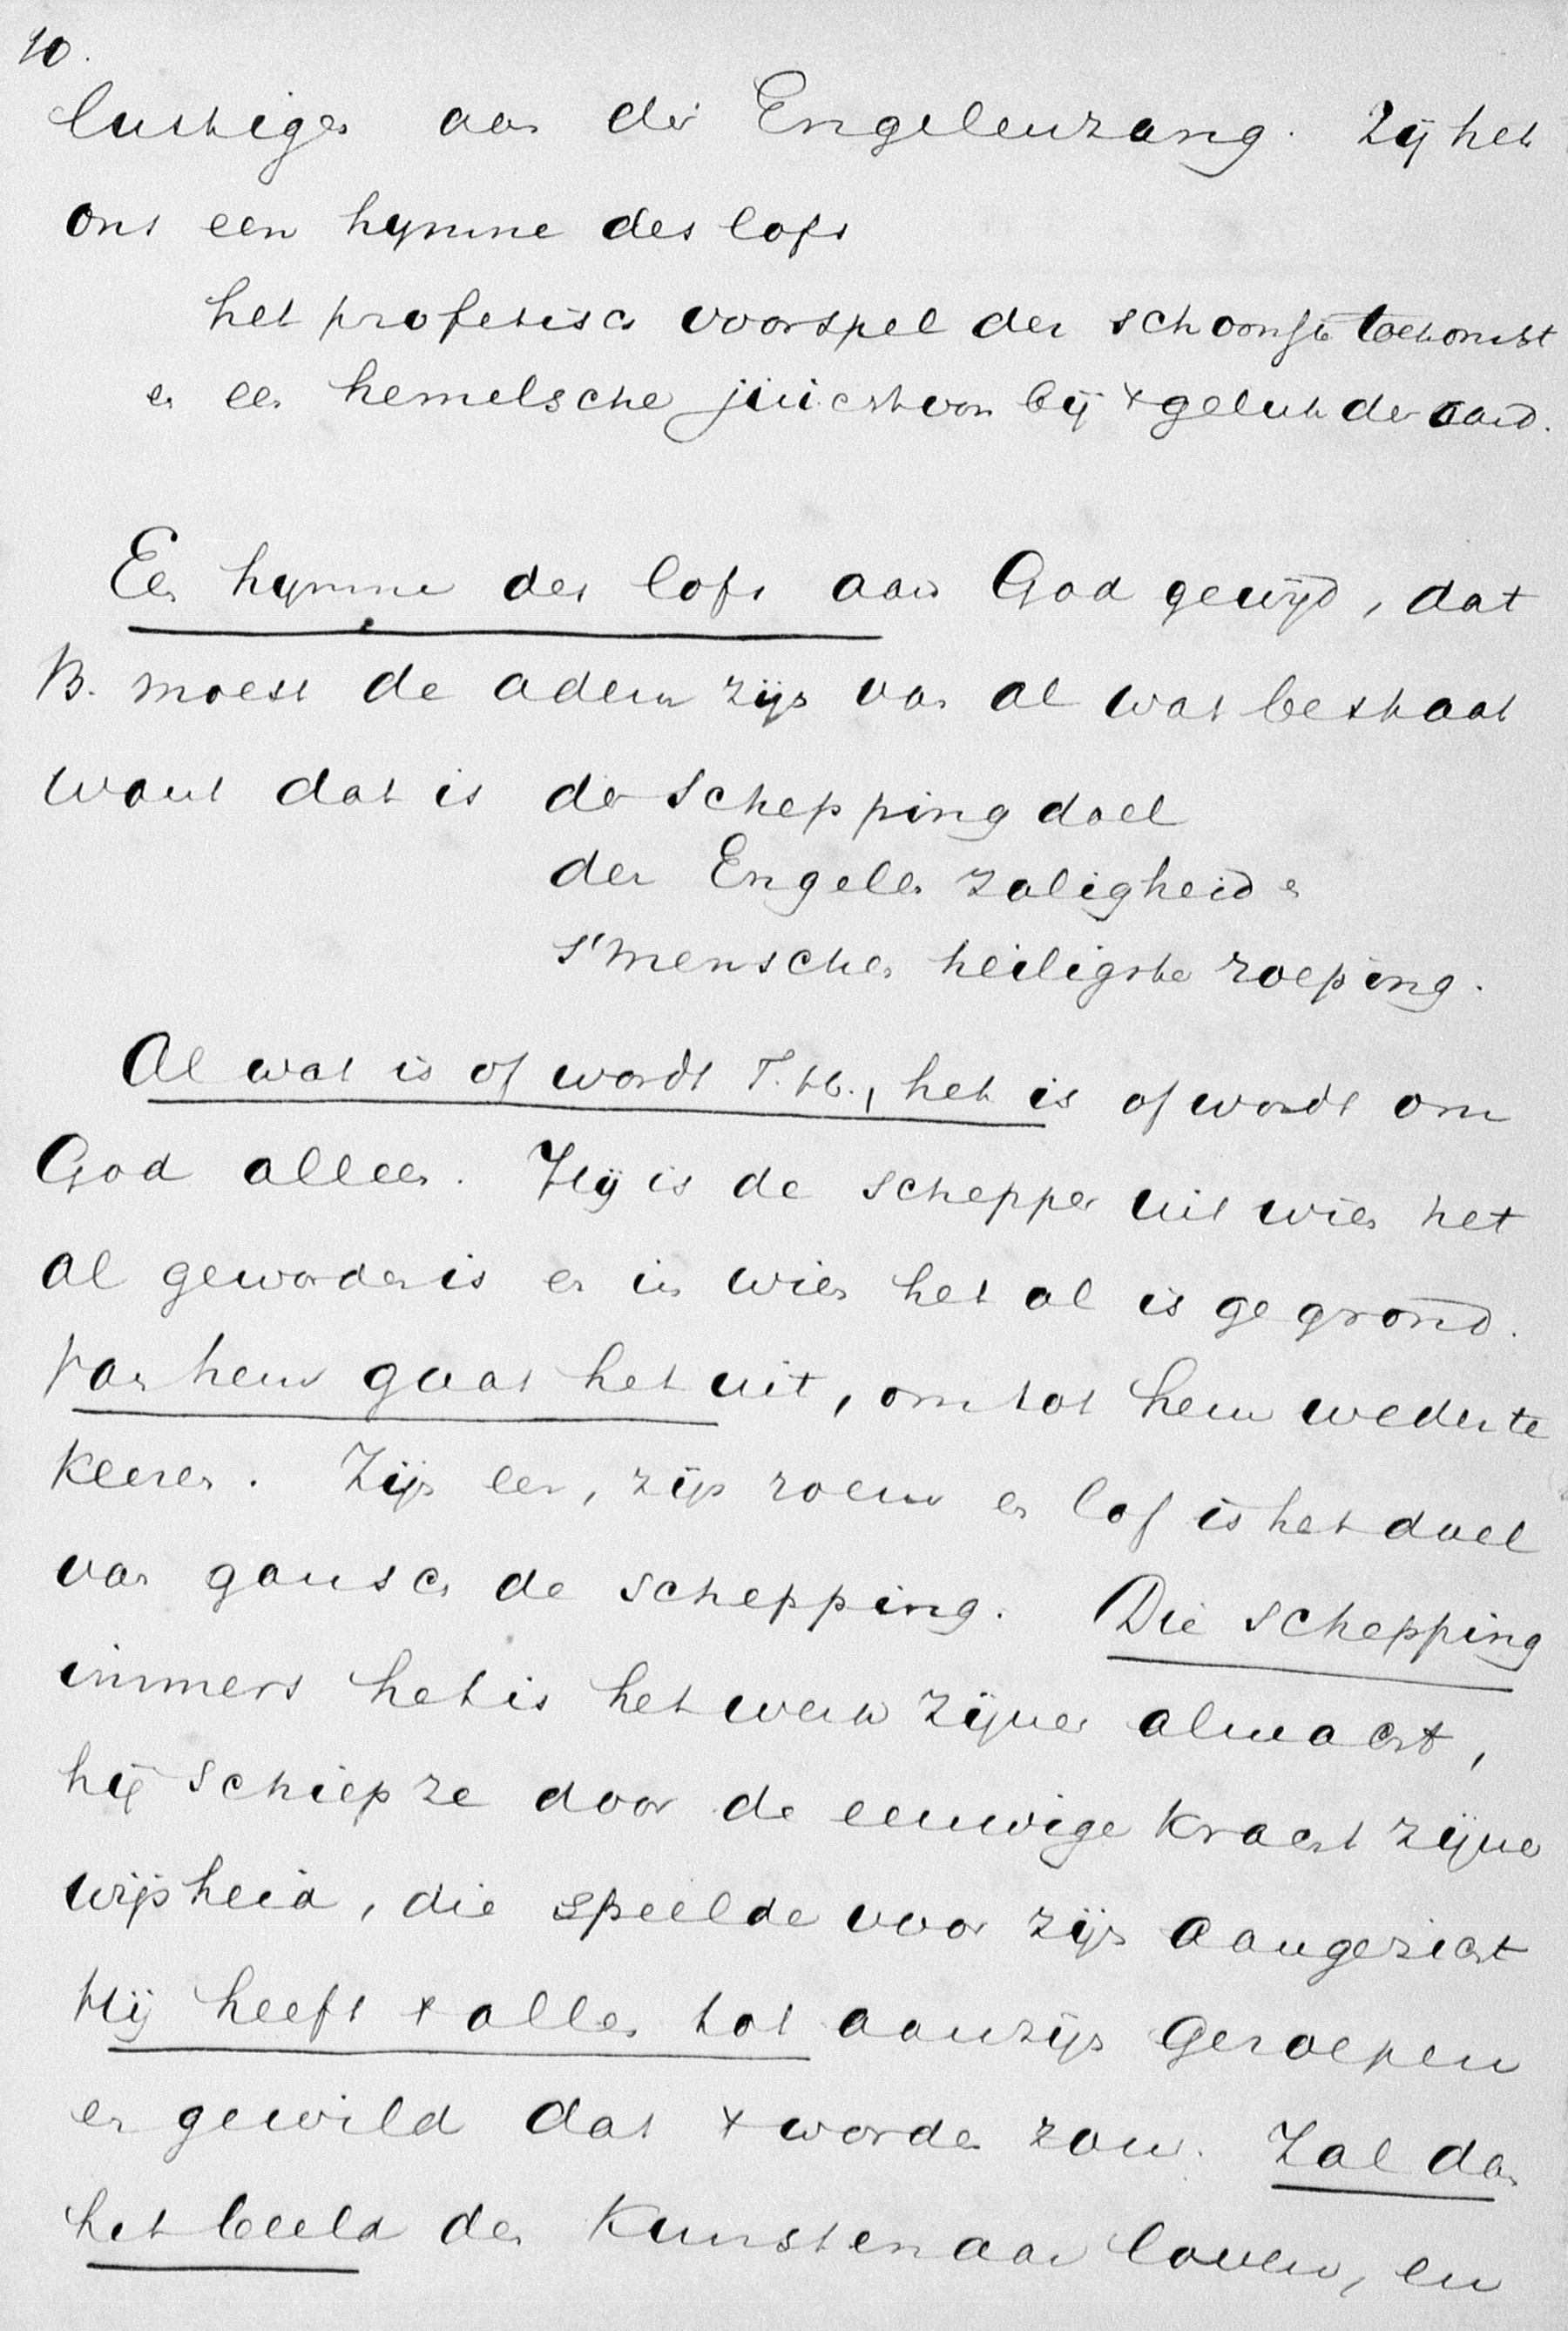 10.
lustiger aan der Engelenzang. Zij het
ons een hymne des lofs
het profetisch voorspel der schoonste toekomst
en een hemelsche juichtoon bij x geluk der aard.
Een hymne des lofs aan God gewijd, dat
B. moest de adem zijn van al wat bestaat
want dat is der schepping doel
der Engelen zaligheid en
s'menschen heiligste roeping.
Al wat is of wordt T.H., het is of wordt om
God alleen. Hij is de schepper uit wien het
al geworden is en in wien het al is gegrond.
Van hem gaat het uit, om tot hem weder te
keeren. Zijn eer, zijn roem en lof is het doel
van gansch de schepping. Die schepping
immers het is het werk zijner almacht,
hij schiep ze door de eeuwige kracht zijner
wijsheid, die speelde voor zijn aangezicht
Hij heeft x alles tot aanzijn geroepen
en gewild dat x worden zou. Zal dan
het beeld den kunstenaar loven, en